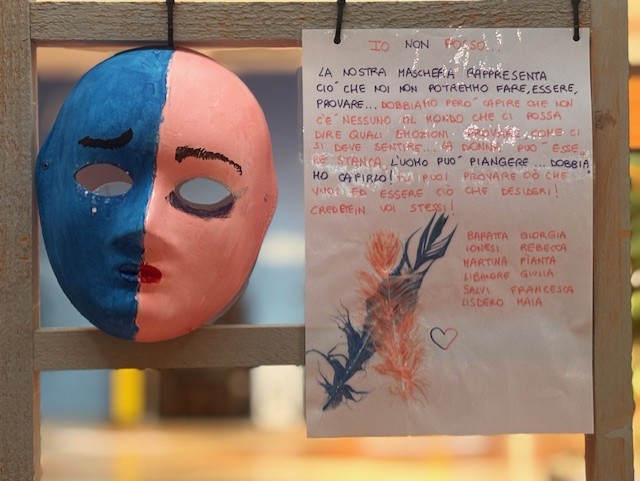 IO NON POSSO...
LA NOSTRA MASCHERA RAPPRESENTA
CIO' CHE NOI NON POTREMMO FARE, ESSERE,
PROVARE... DOBBIAMO PERO' CAPIRE CHE NON
C'E' NESSUNO AL MONDO CHE CI POSSA
DIRE QUALI EMOZIONI PROVARE, COME CI
SI DEVE SENTIRE... LA DONNA PUO' ESSE
RE STANCA, L'UOMO PUO' PIANGERE... DOBBIA
MO CAPIRLO! TU PUOI PROVARE CIÒ CHE
VUOI ED ESSERE CIÒ CHE DESIDERI!
CREDETE IN VOI STESSI!
BARATTA GIORGIA
IONESI REBECCA
MARTINA PIANTA
LIBMORE GIULIA
SALVI FRANCESCA
LISDERO MAIA